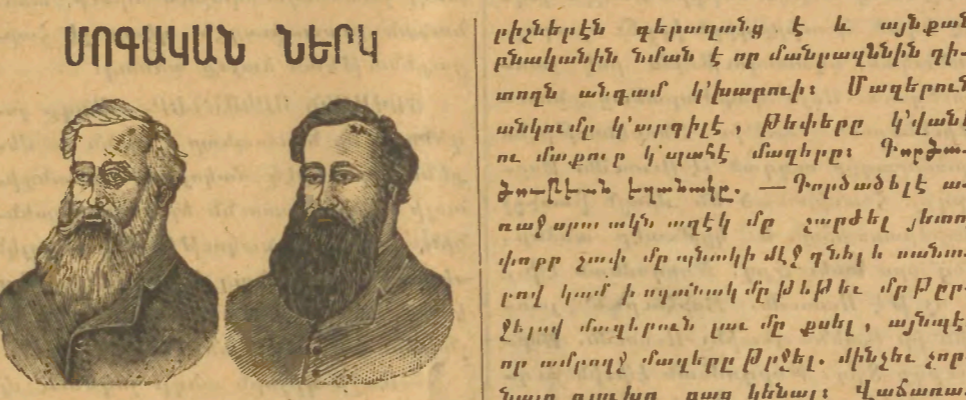 ՄՈԳԱԿԱՆ ՆԵՐԿ
րիչներէն գերազանց է և այնքան
բնականին նման է որ մանրազննին դի-
տողն անգամ կ'խարուի։ Մազերուն
անկումը կ'արգիլէ, թեփերը կ'վանէ
ու մաքուր կ'պահէ մազերը։ Գործա-
ծութեան եղանակը. — Գործածելէ ա-
ռաջ արուակն աղէկ մը շարժել յետոյ
փոքր չափ մը պնակի մէջ դնել և սանտ-
րով կամ խոզանակ մը թեթեւ մը թըր-
ջելով մազերուն լաւ մը քսել, այնպէս
որ ամբողջ մազերը թրջել. մինչեւ չոր-
նայ գլուխը բաց կենալ։ Վաճառա-